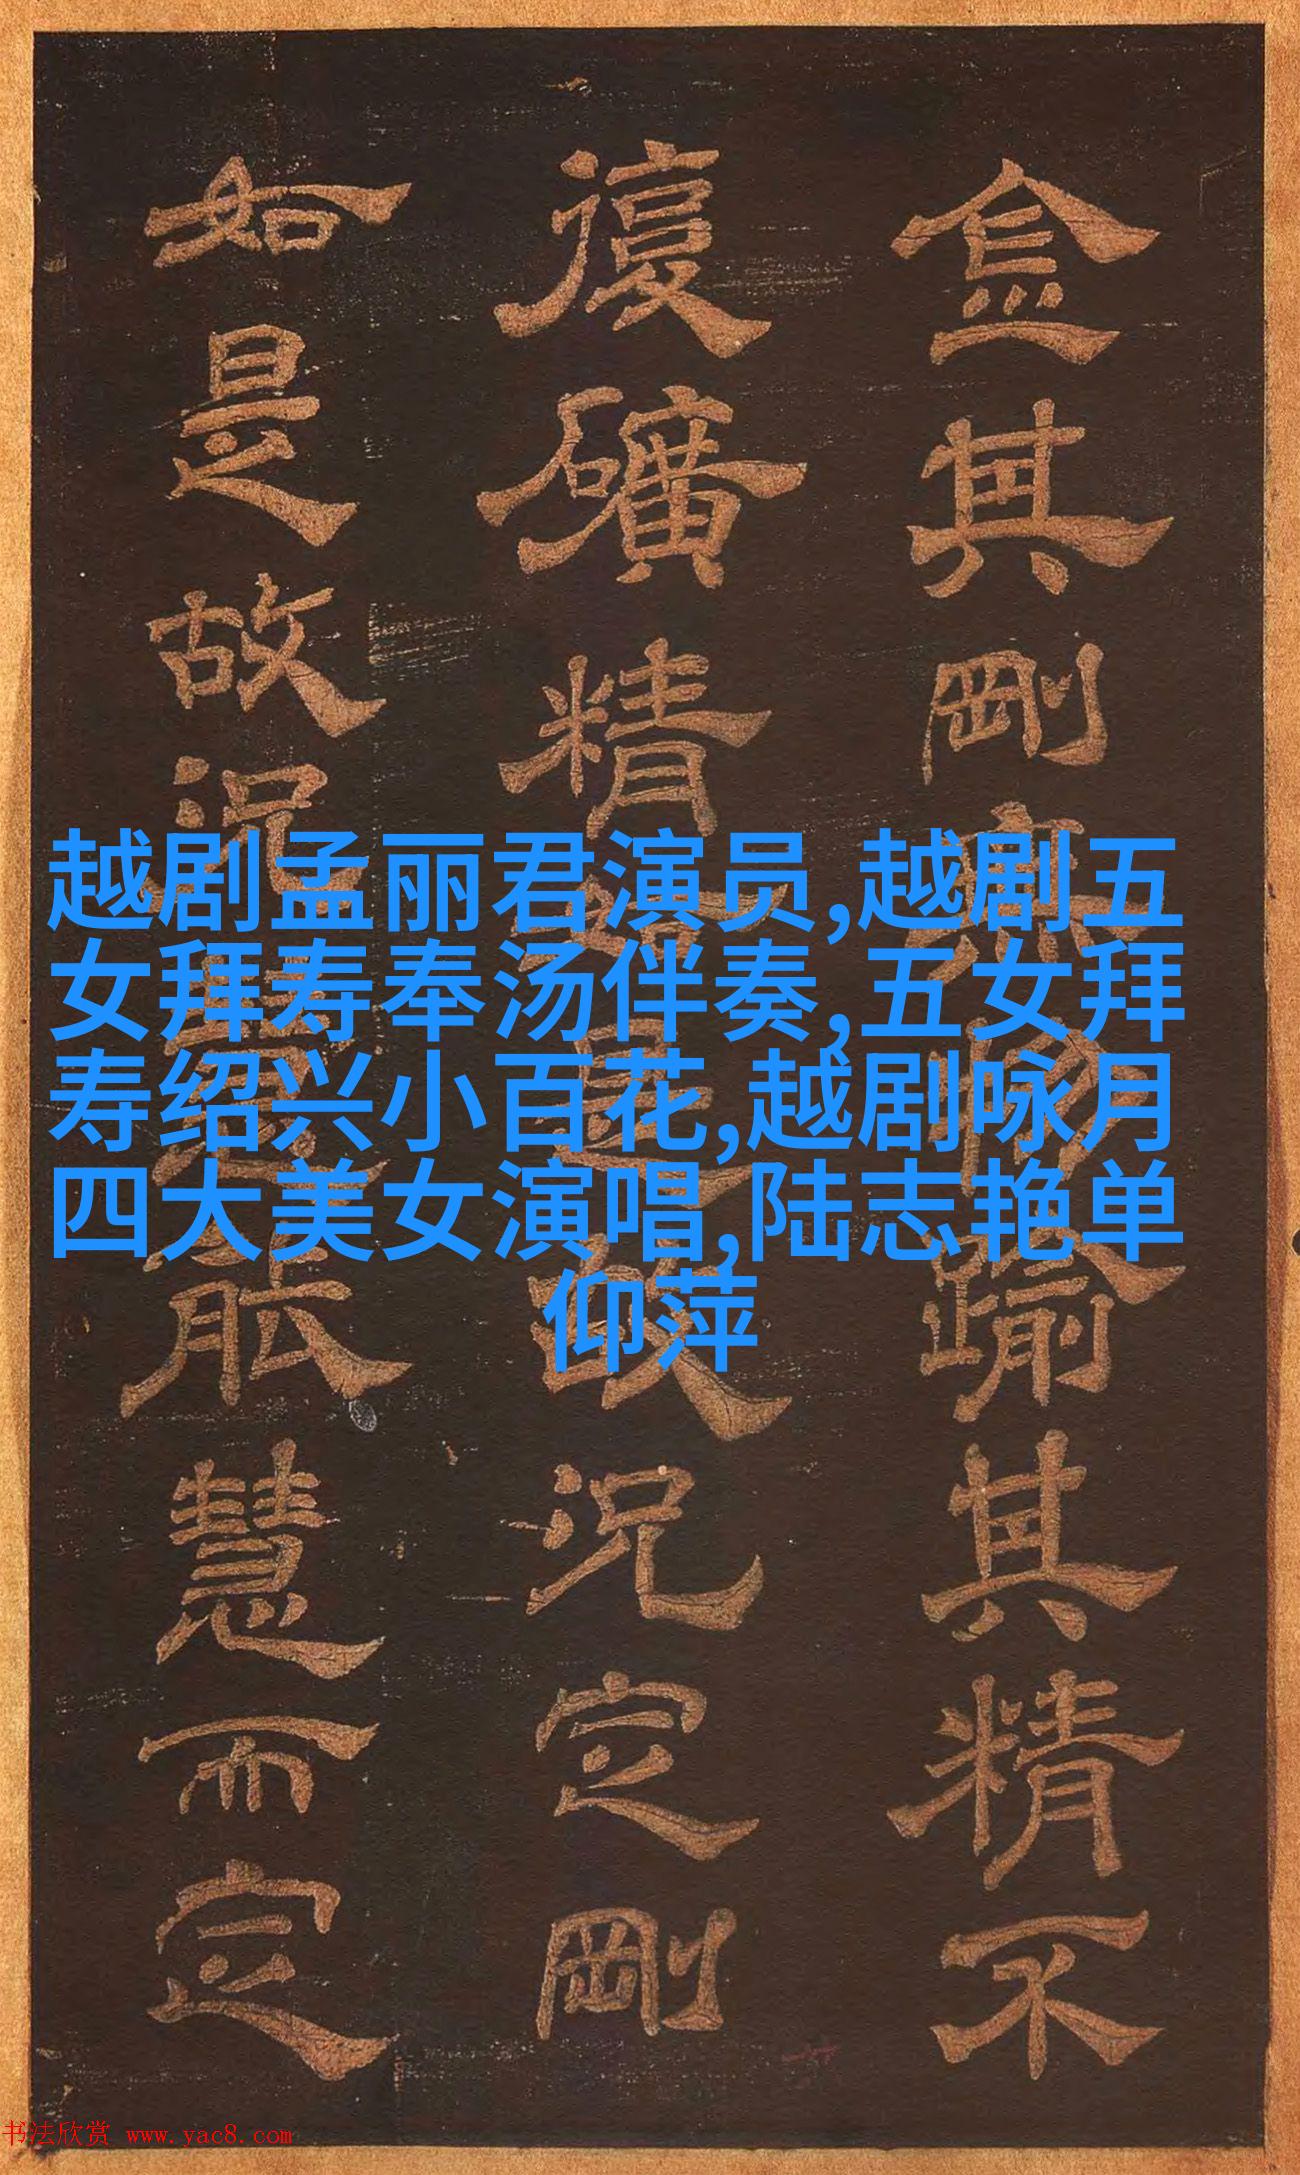 越剧孟丽君演员,越剧五
女拜寿奉汤伴奏,五女拜
寿绍兴小百花,越剧咏月
四大美女演唱,陆志艳单
仰萍
金其剛踰其精不
復礦精是故況定剛
如是故況能慧而定
书法欣赏 www.yac8.com